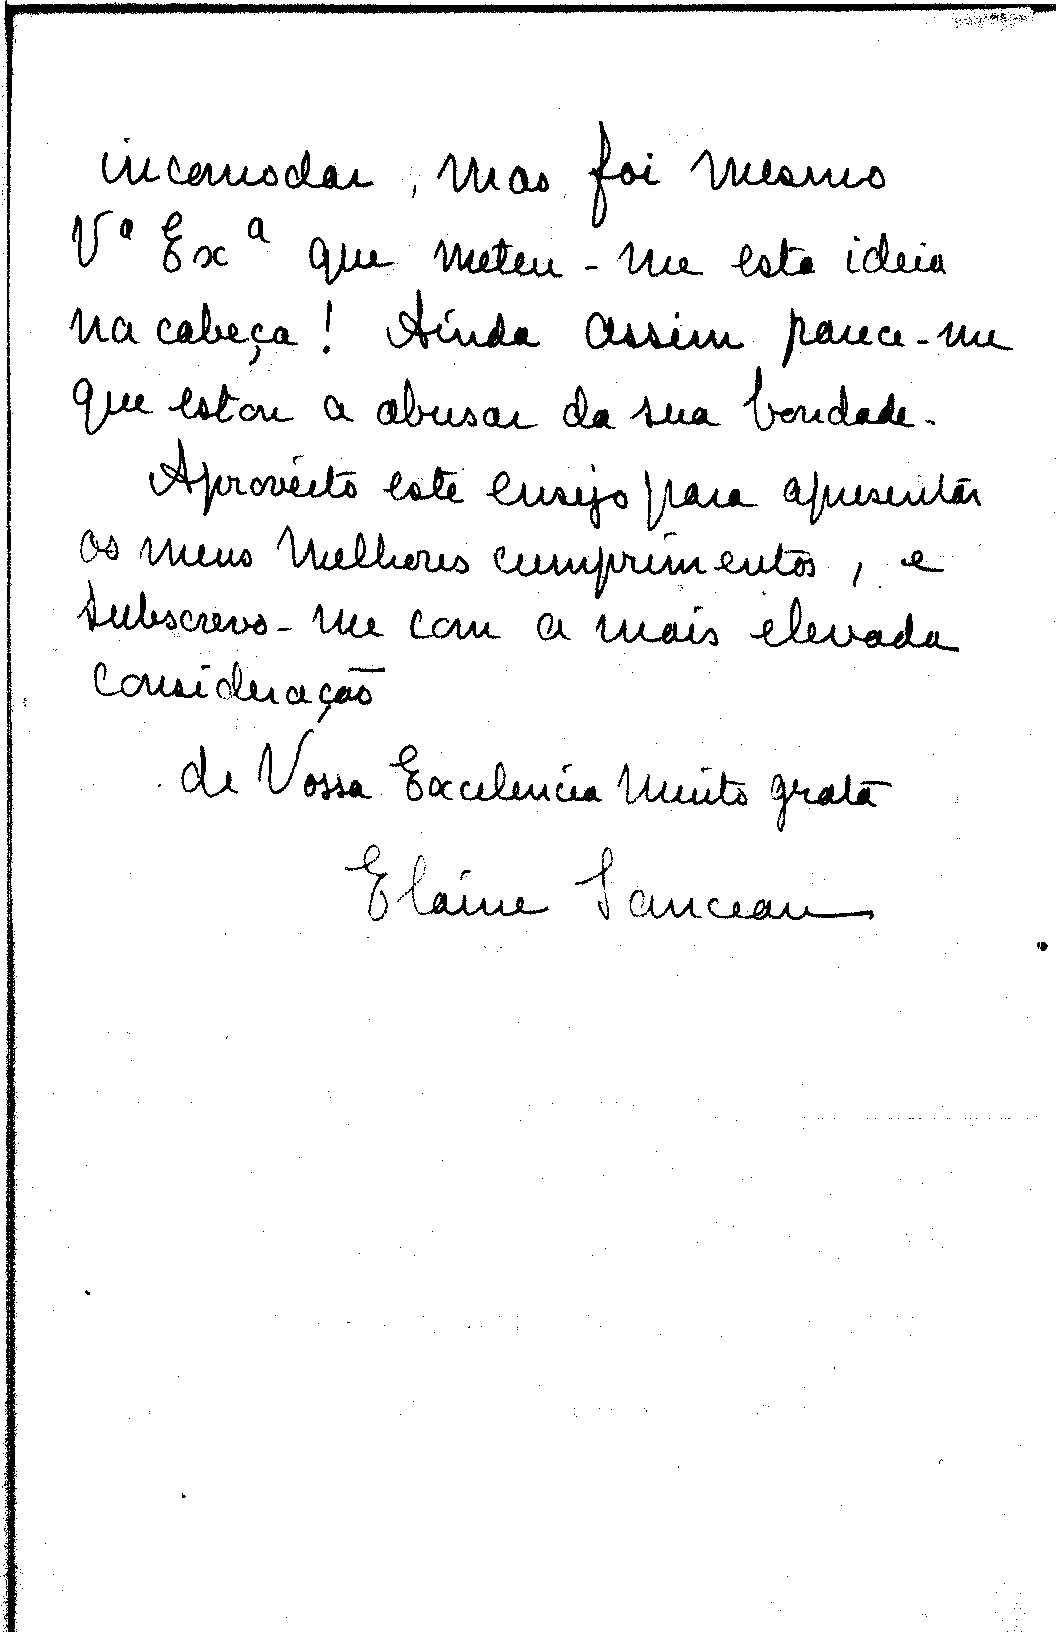 incomodar, mas foi mesmo
Vª Exª que meteu-me esta ideia
na cabeça! Ainda assim parece-me
que estou a abusar da sua bondade.
Aproveito este ensejo para apresentar
os meus melhores cumprimentos, e
subscrevo-me com a mais elevada
consideração
de Vossa Excelencia muito grata
Elaine Sanceau